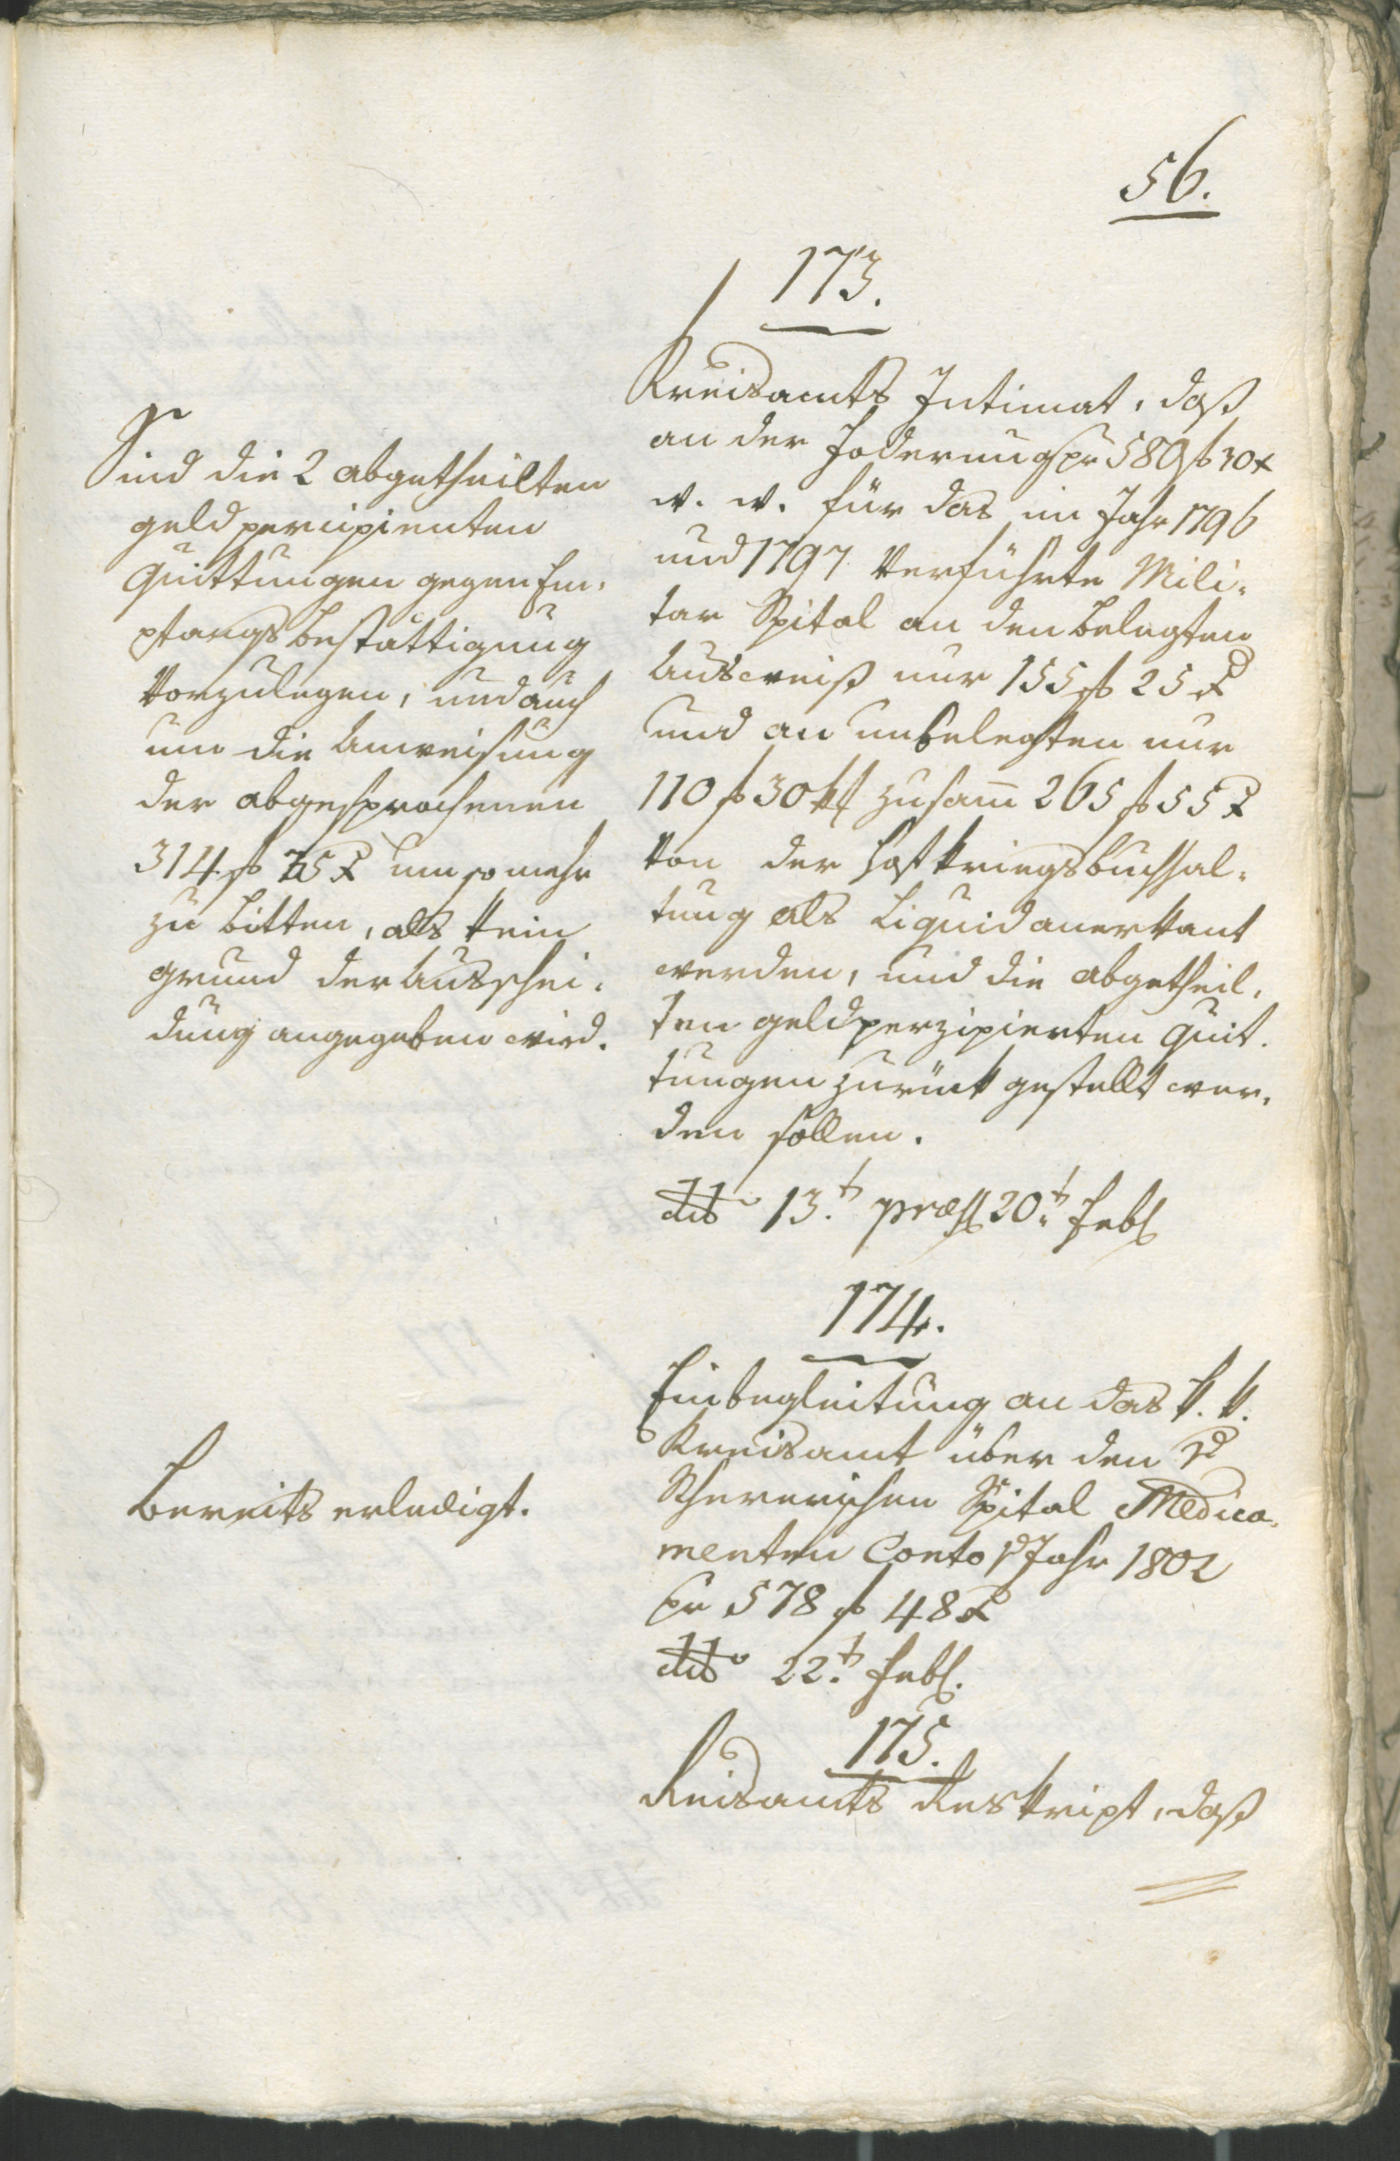 56.
173.
Kreisamts Intimat, daß
an der Foderung pr 580 f 30 x
w. w. für das im Jahr 1796
und 1797 verführte Mili-
tar Spital an den belegten
Ausweiß nur 155 f 25 x
und an unbelegten nur
110 f 30 kr zusam̅ 265 f 55 x
von der Hofkriegsbuchhal-
tung als liquid anerkant
werden, und die abgetheil-
ten geldperzipierten Quit-
tungen zurük gestellt wer-
den sollen.
dto 13.t præs 20.t Febr
Sind die 2 abgetheilten
geld percipienten
Quittungen gegen Em-
pfangsbestättigung
vorzulegen, und auch
um die Anweisung
der abgesprochenen
314 f 35 x um so mehr
zu bitten, als kein
grund der Ausschei-
dung angegeben wird.
174.
Einbegleitung an das k. k.
Kreisamt über den
Scherrischen Spital Medica-
menten Conto Jahr 1802
pr 578 f 48 x
dto 22.t Febr.
Bereits erledigt.
175.
Kreisamts Reskript, daß